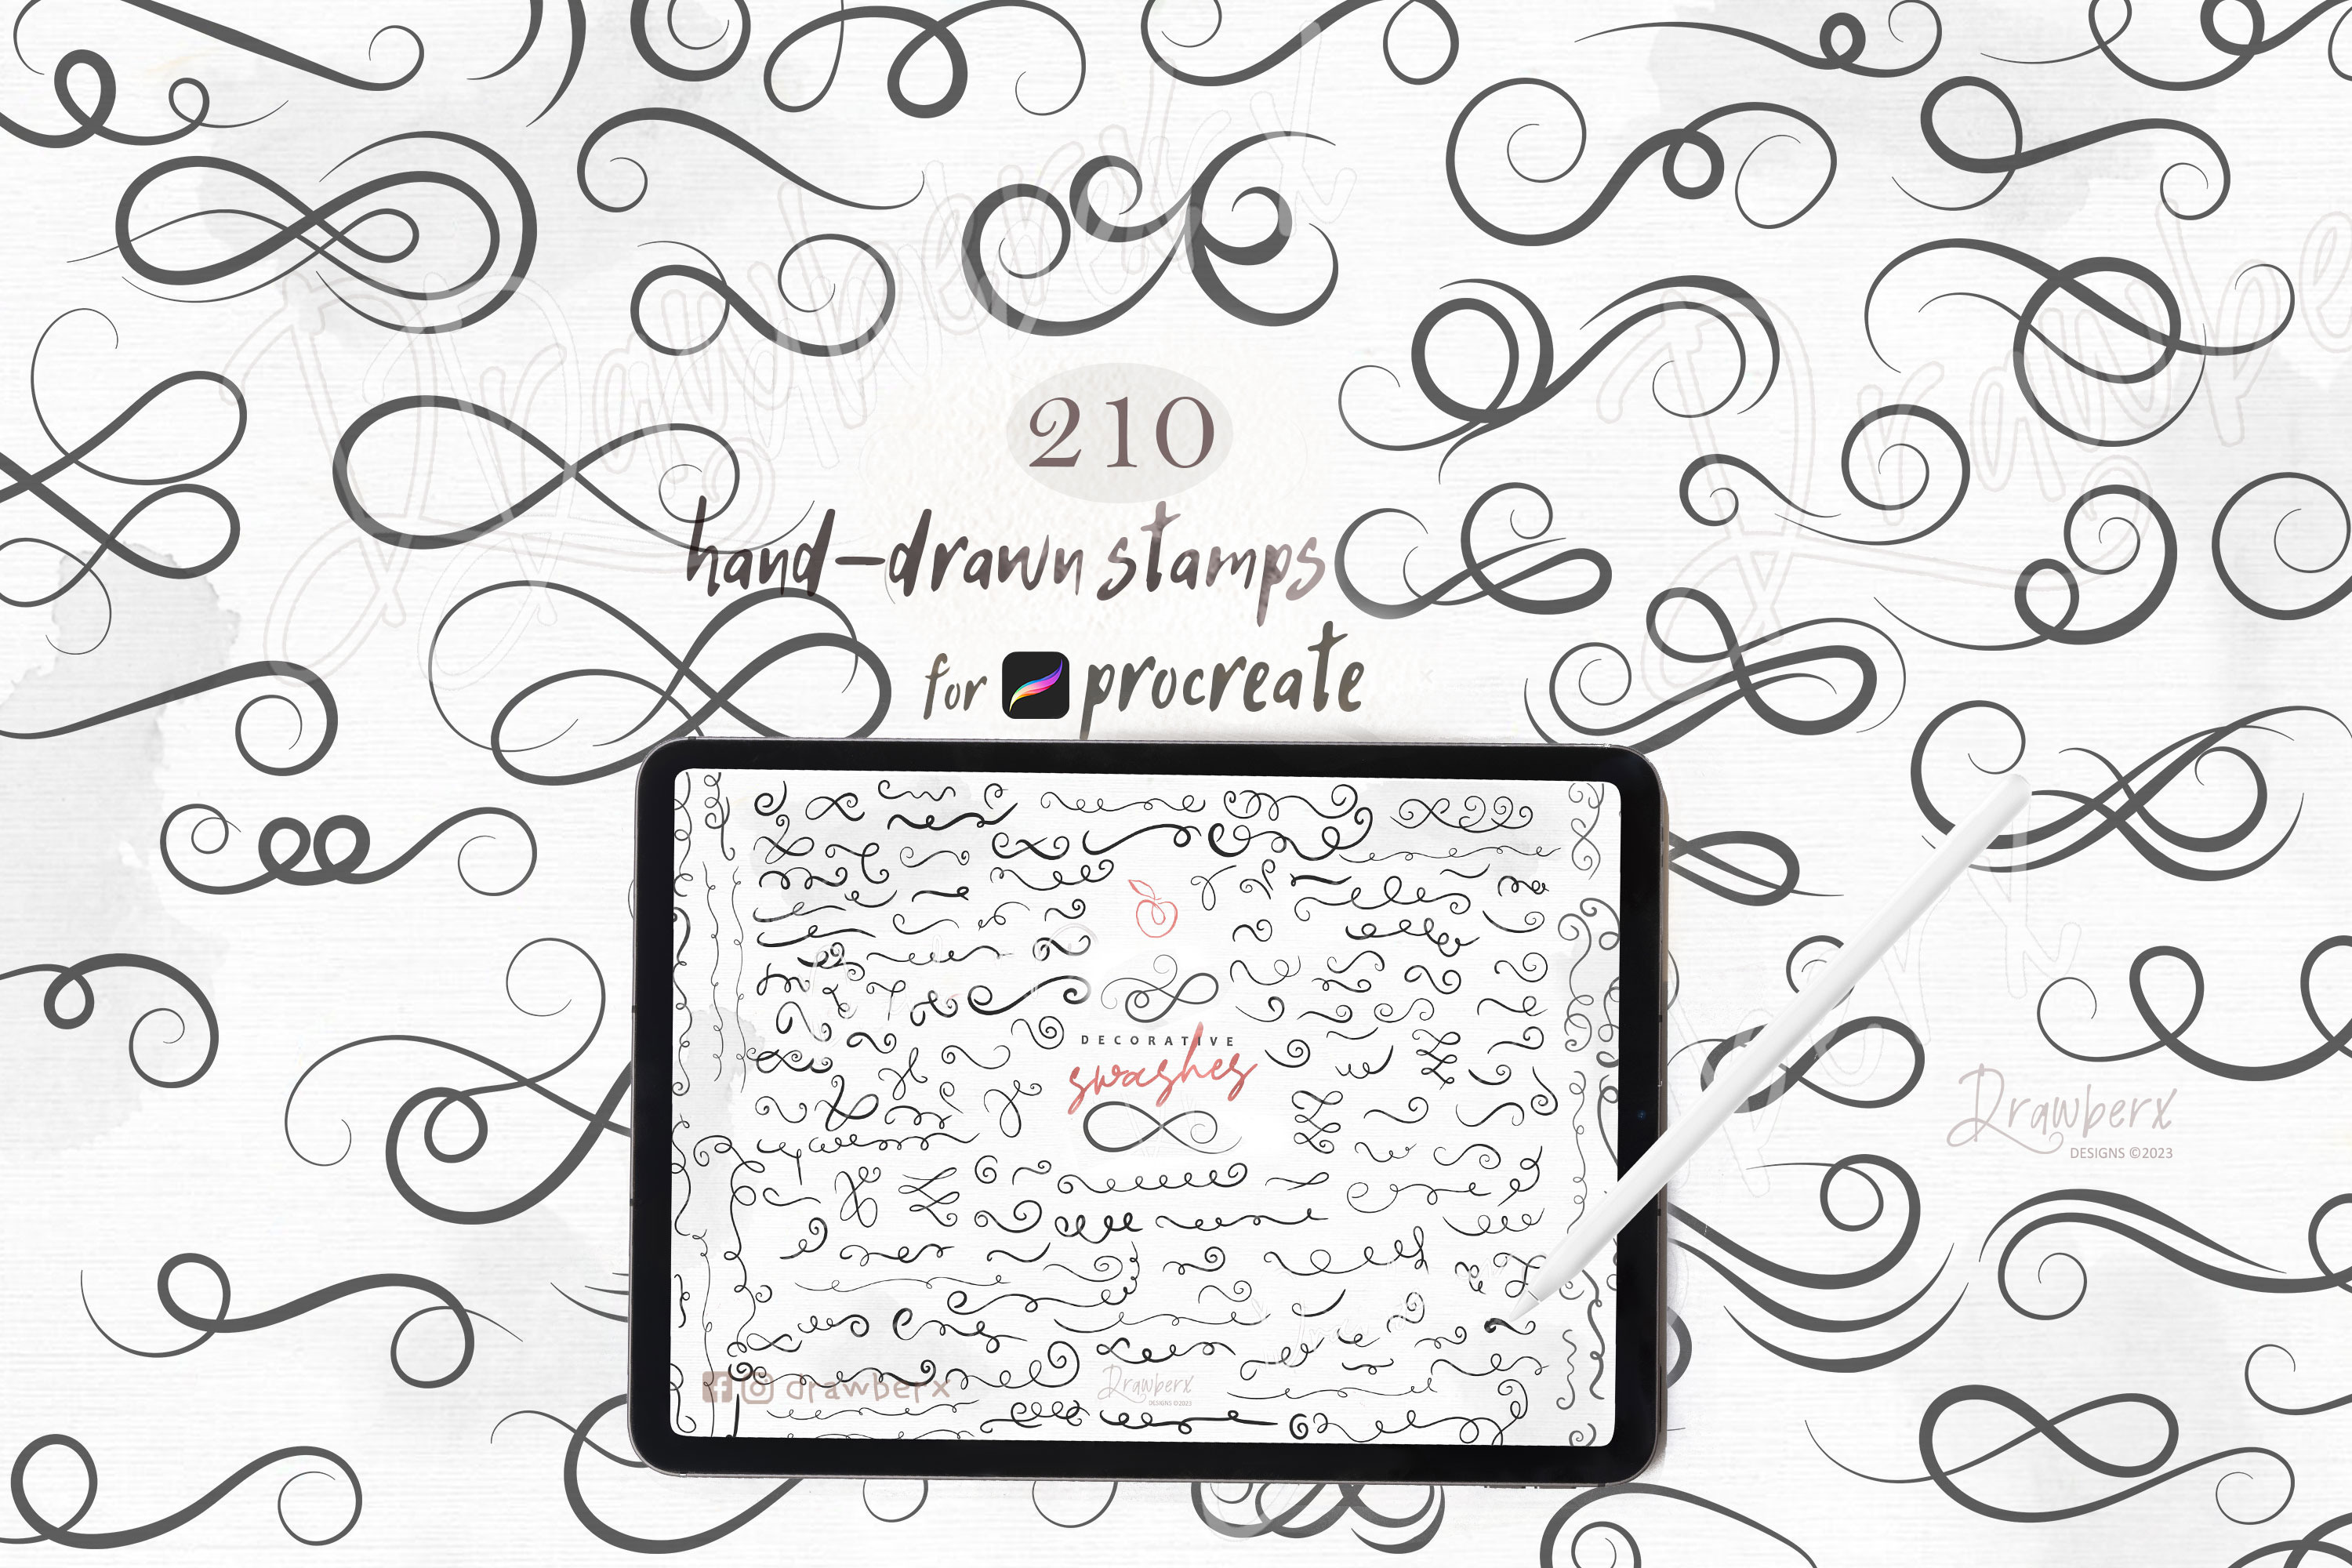 210
hand-drawn stamps
for procreate
DECORATIVE
swashes
drawberx
Drawberx
DESIGNS ©2023
Drawberx
DESIGNS ©2023
Drawberx
Drawberx